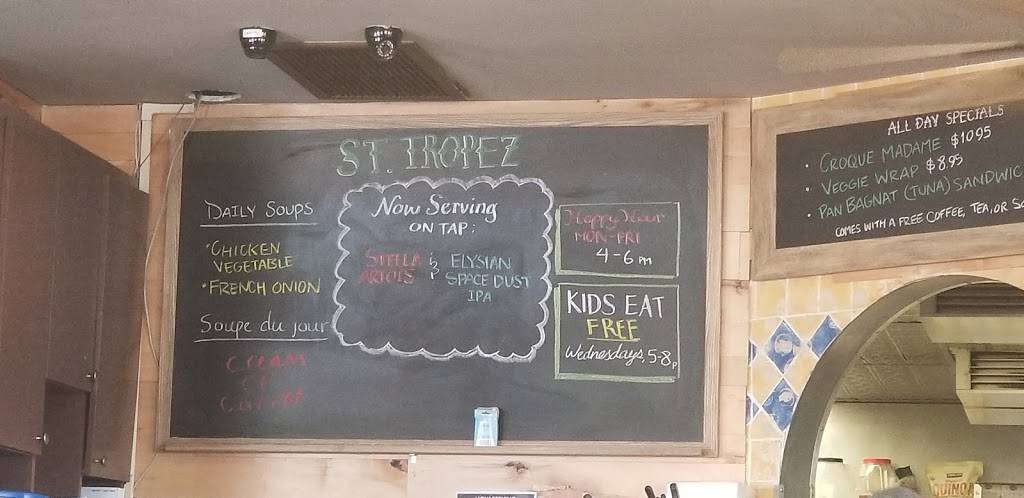 ST. TROPEZ
DAILY SOUPS
• CHICKEN
VEGETABLE
• FRENCH ONION
Soupe du jour
CREAM
OF
CARROT
Now Serving
ON TAP:
STELLA
ARTOIS
&
ELYSIAN
SPACE DUST
IPA
Happy Hour
MON-FRI
4-6 PM
KIDS EAT
FREE
Wednesdays, 5-8p
ALL DAY SPECIALS
• CROQUE MADAME $10.95
• VEGGIE WRAP $8.95
• PAN BAGNAT (TUNA) SANDWIC
COMES WITH A FREE COFFEE, TEA, OR SO
QUINOA